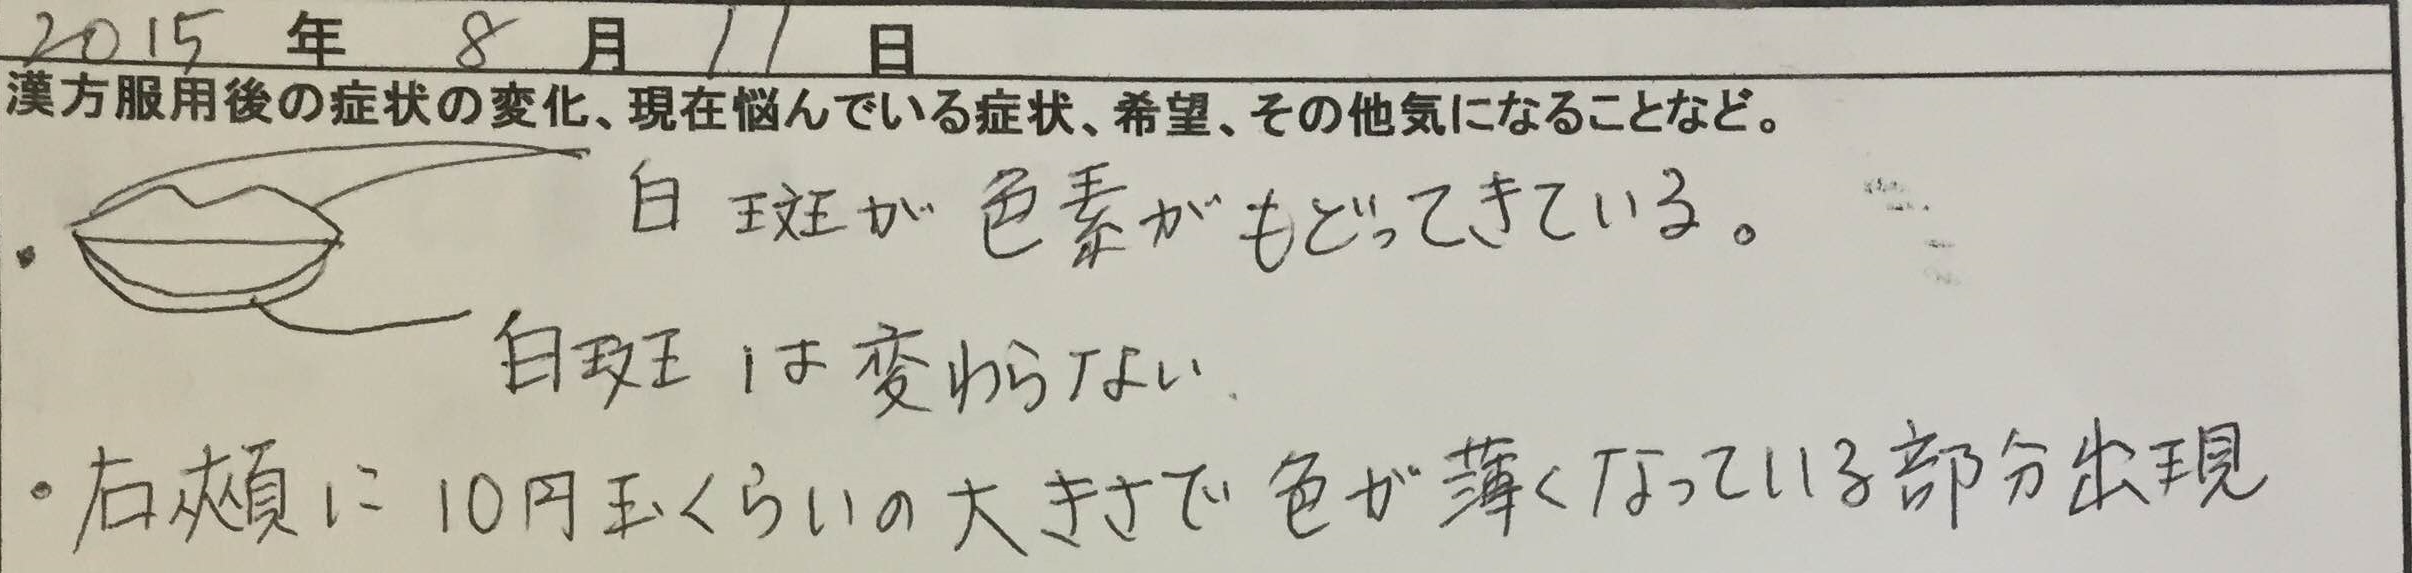 2015 年 8 月 11 日
漢方服用後の症状の変化、現在悩んでいる症状、希望、その他気になることなど。
白斑が色素がもどってきている。
白斑は変わらない
・右頬に10円玉くらいの大きさで色が薄くなっている部分出現